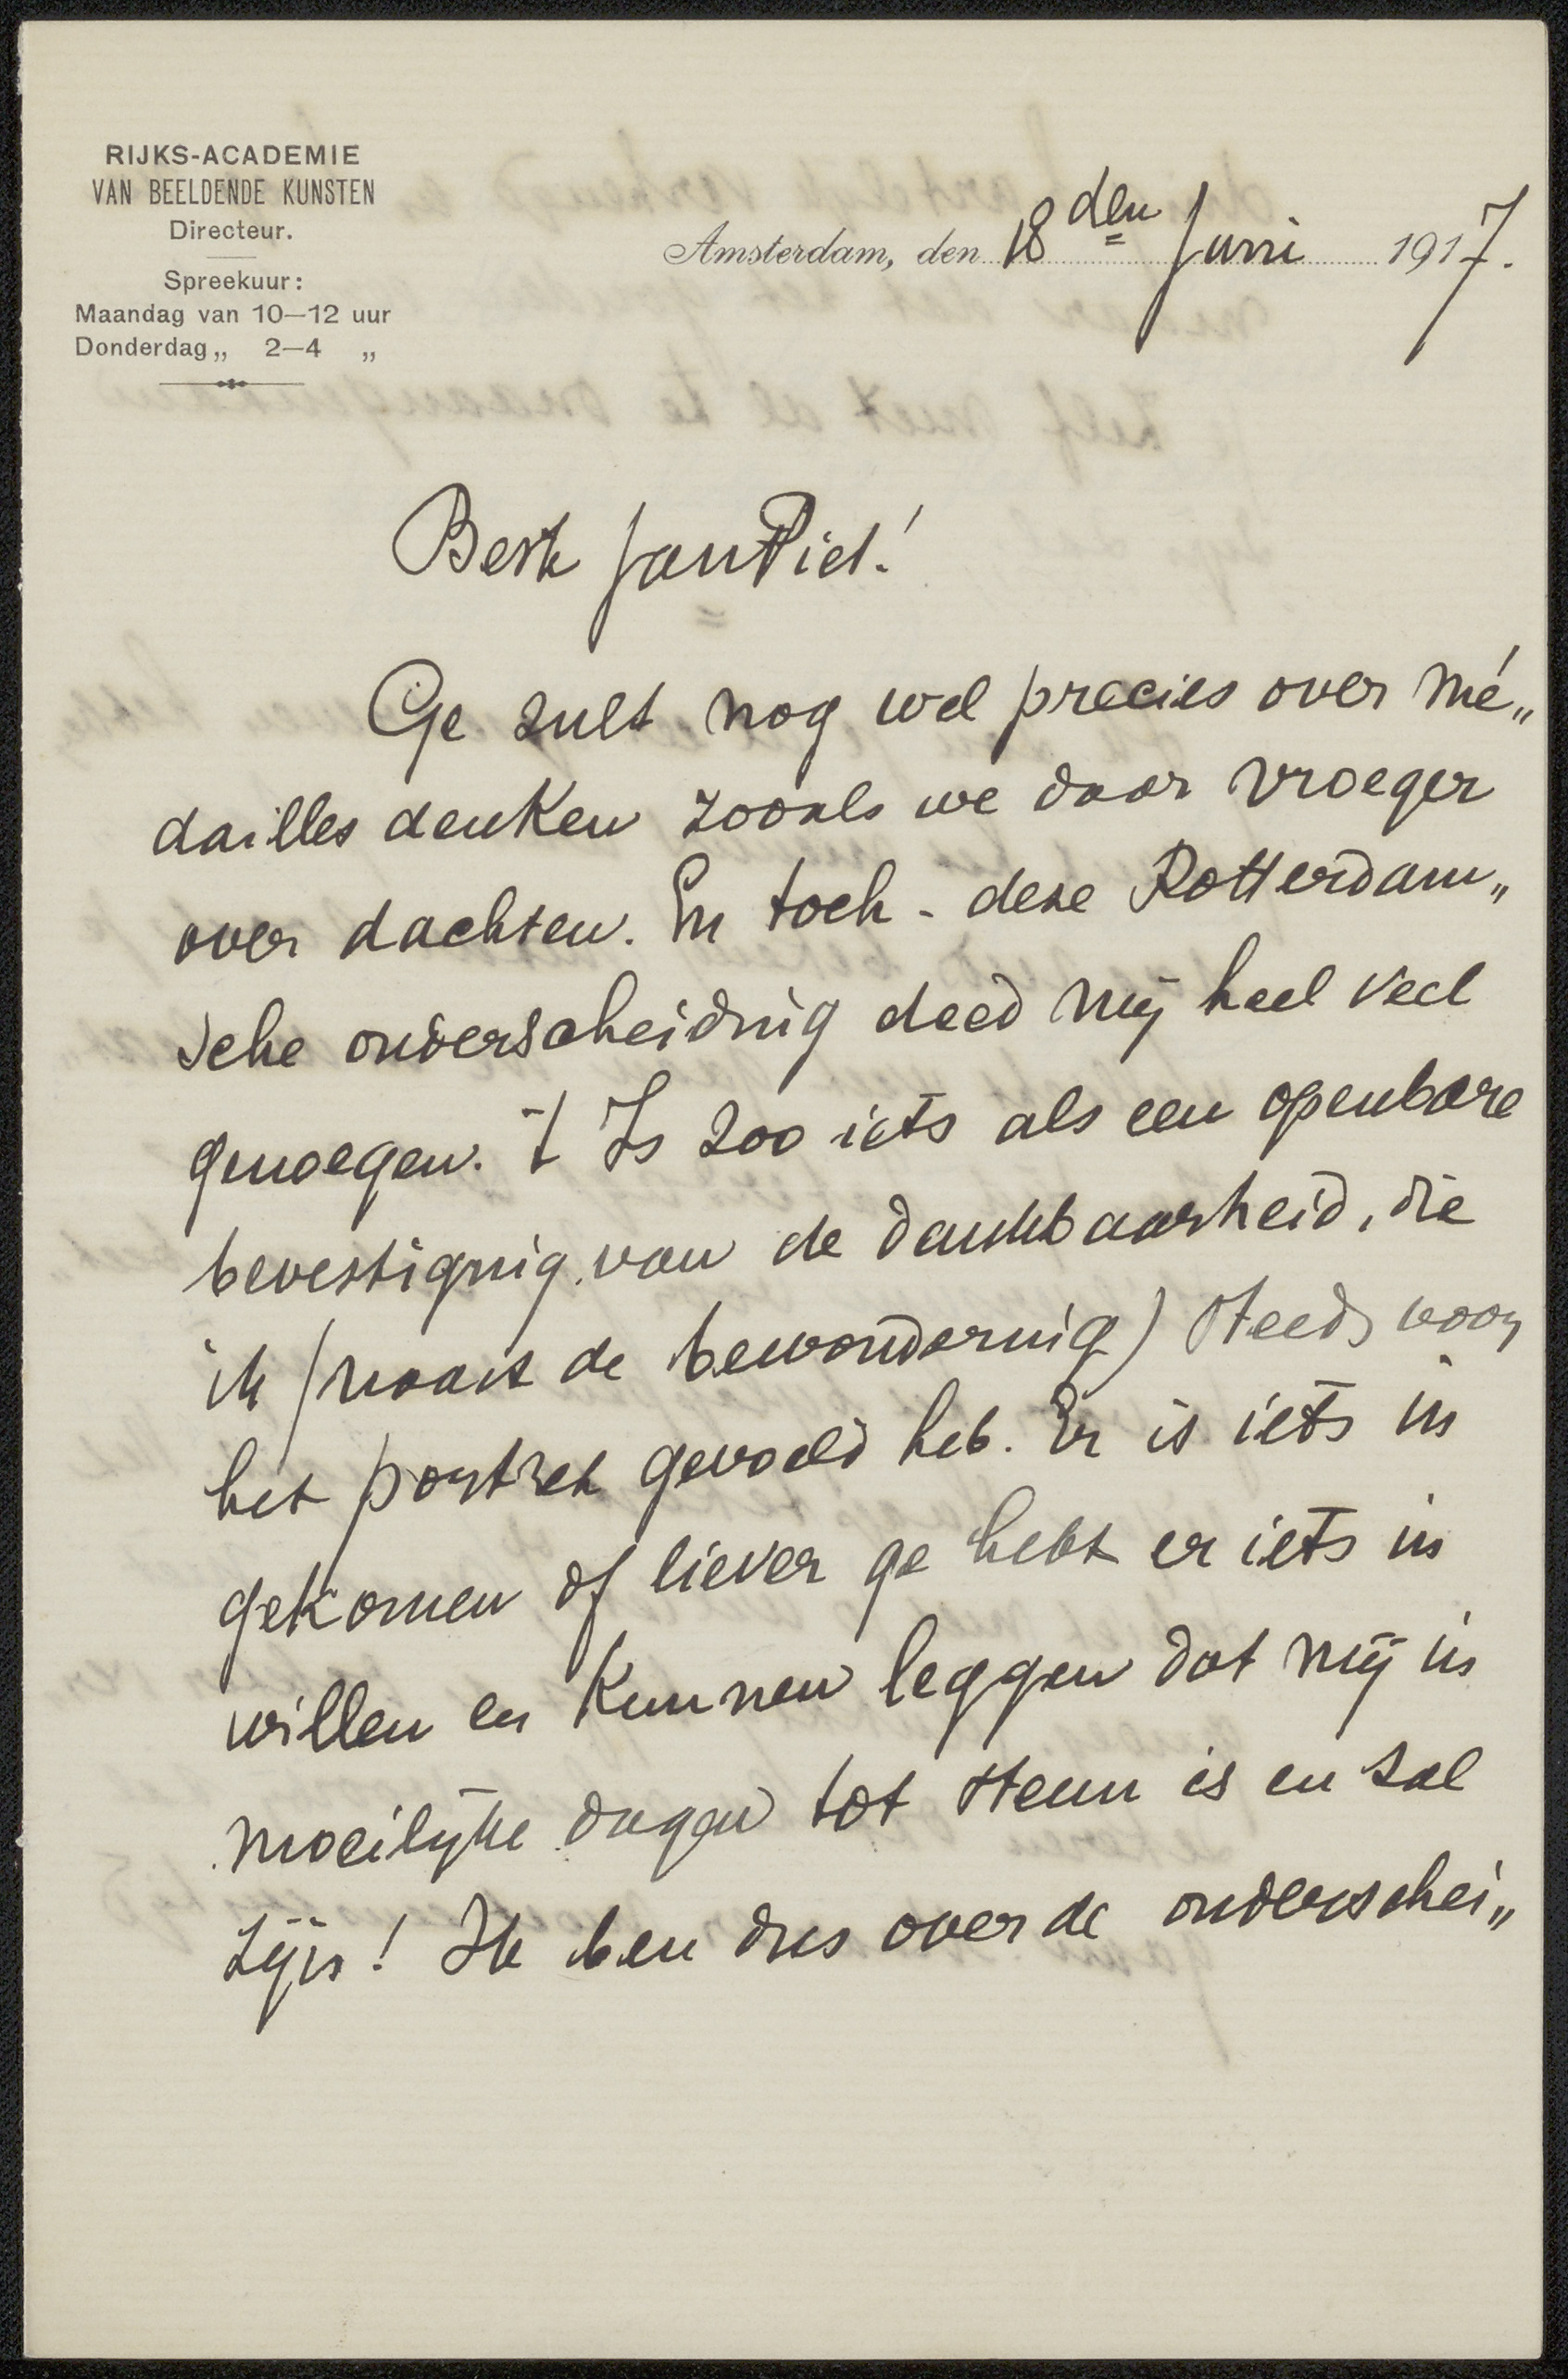 RIJKS-ACADEMIE
VAN BEELDENDE KUNSTEN
Directeur.
Spreekuur:
Maandag van 10—12 uur
Donderdag „ 2—4 „
Amsterdam, den 18den Juni 1917.
Beste Jan Piet!
Ge zult nog wel precies over mé„
dailles denken zooals we daar vroeger
over dachten. En toch - deze Rotterdam„
sche onderscheiding deed mij heel veel
genoegen. 't Is zoo iets als een openbare
bevestiging van de dankbaarheid, die
ik (naast de bewondering) steeds voor
het portret gevoeld heb. Er is iets in
gekomen of liever ge hebt er iets in
willen en kunnen leggen dat mij in
moeilijke dagen tot steun is en zal
zijn! Ik ben dus over de onderschei„